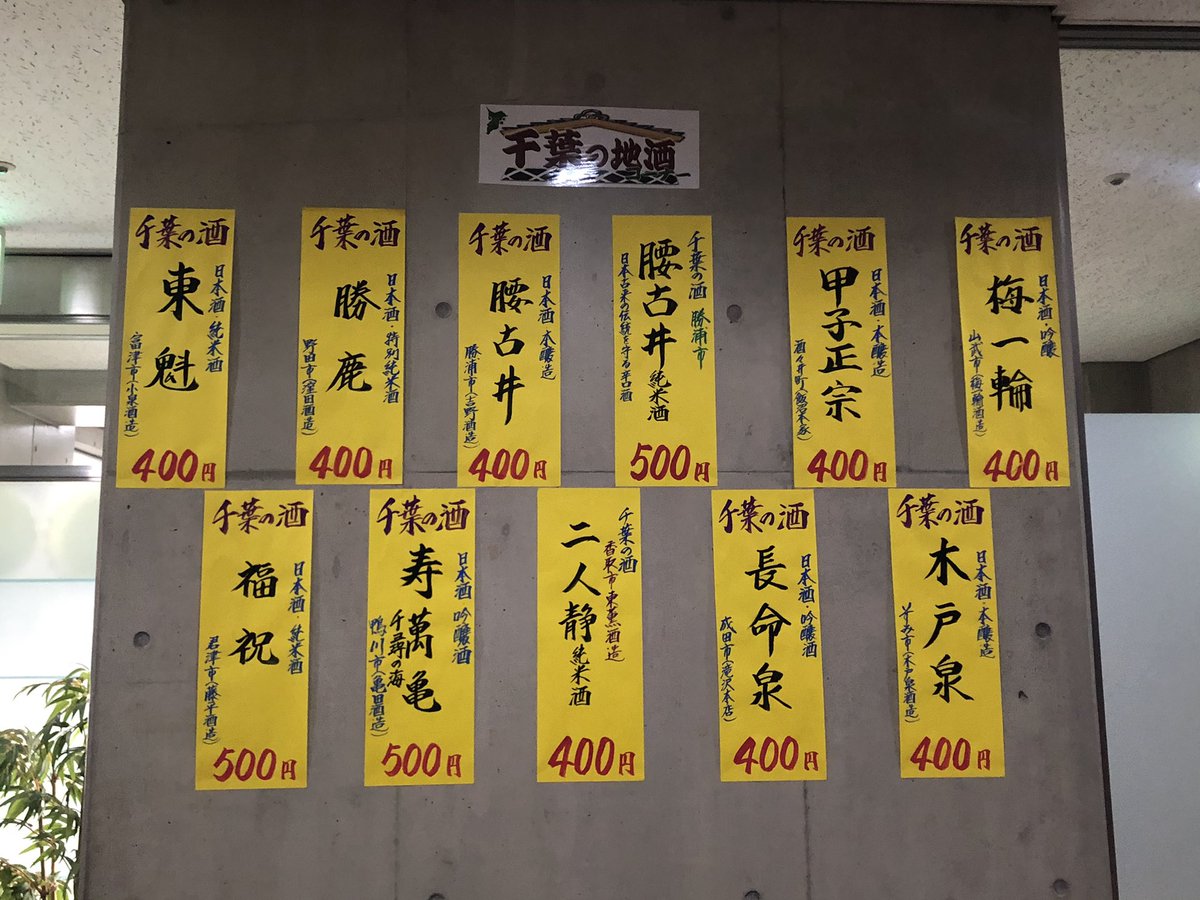 千葉の地酒
千葉の酒
日本酒・純米酒
東魁
富津市(小泉酒造)
400円
千葉の酒
日本酒・特別純米酒
勝鹿
野田市(窪田酒造)
400円
千葉の酒
日本酒・本醸造
腰古井
勝浦市(吉野酒造)
400円
千葉の酒 勝浦市
腰古井純米酒
日本古来の伝統を守る辛口酒
500円
千葉の酒
日本酒・本醸造
甲子正宗
酒々井町(飯沼本家)
400円
千葉の酒
日本酒・吟醸
梅一輪
山武市(梅一輪酒造)
400円
千葉の酒
日本酒・純米酒
福祝
君津市(藤平酒造)
500円
千葉の酒
日本酒 吟醸酒
寿萬亀
千尋の海
鴨川市(亀田酒造)
500円
千葉の酒
香取市東薫酒造
二人静純米酒
400円
千葉の酒
日本酒・吟醸酒
長命泉
成田市(滝沢本店)
400円
千葉の酒
日本酒・本醸造
木戸泉
いすみ市(木戸泉酒造)
400円